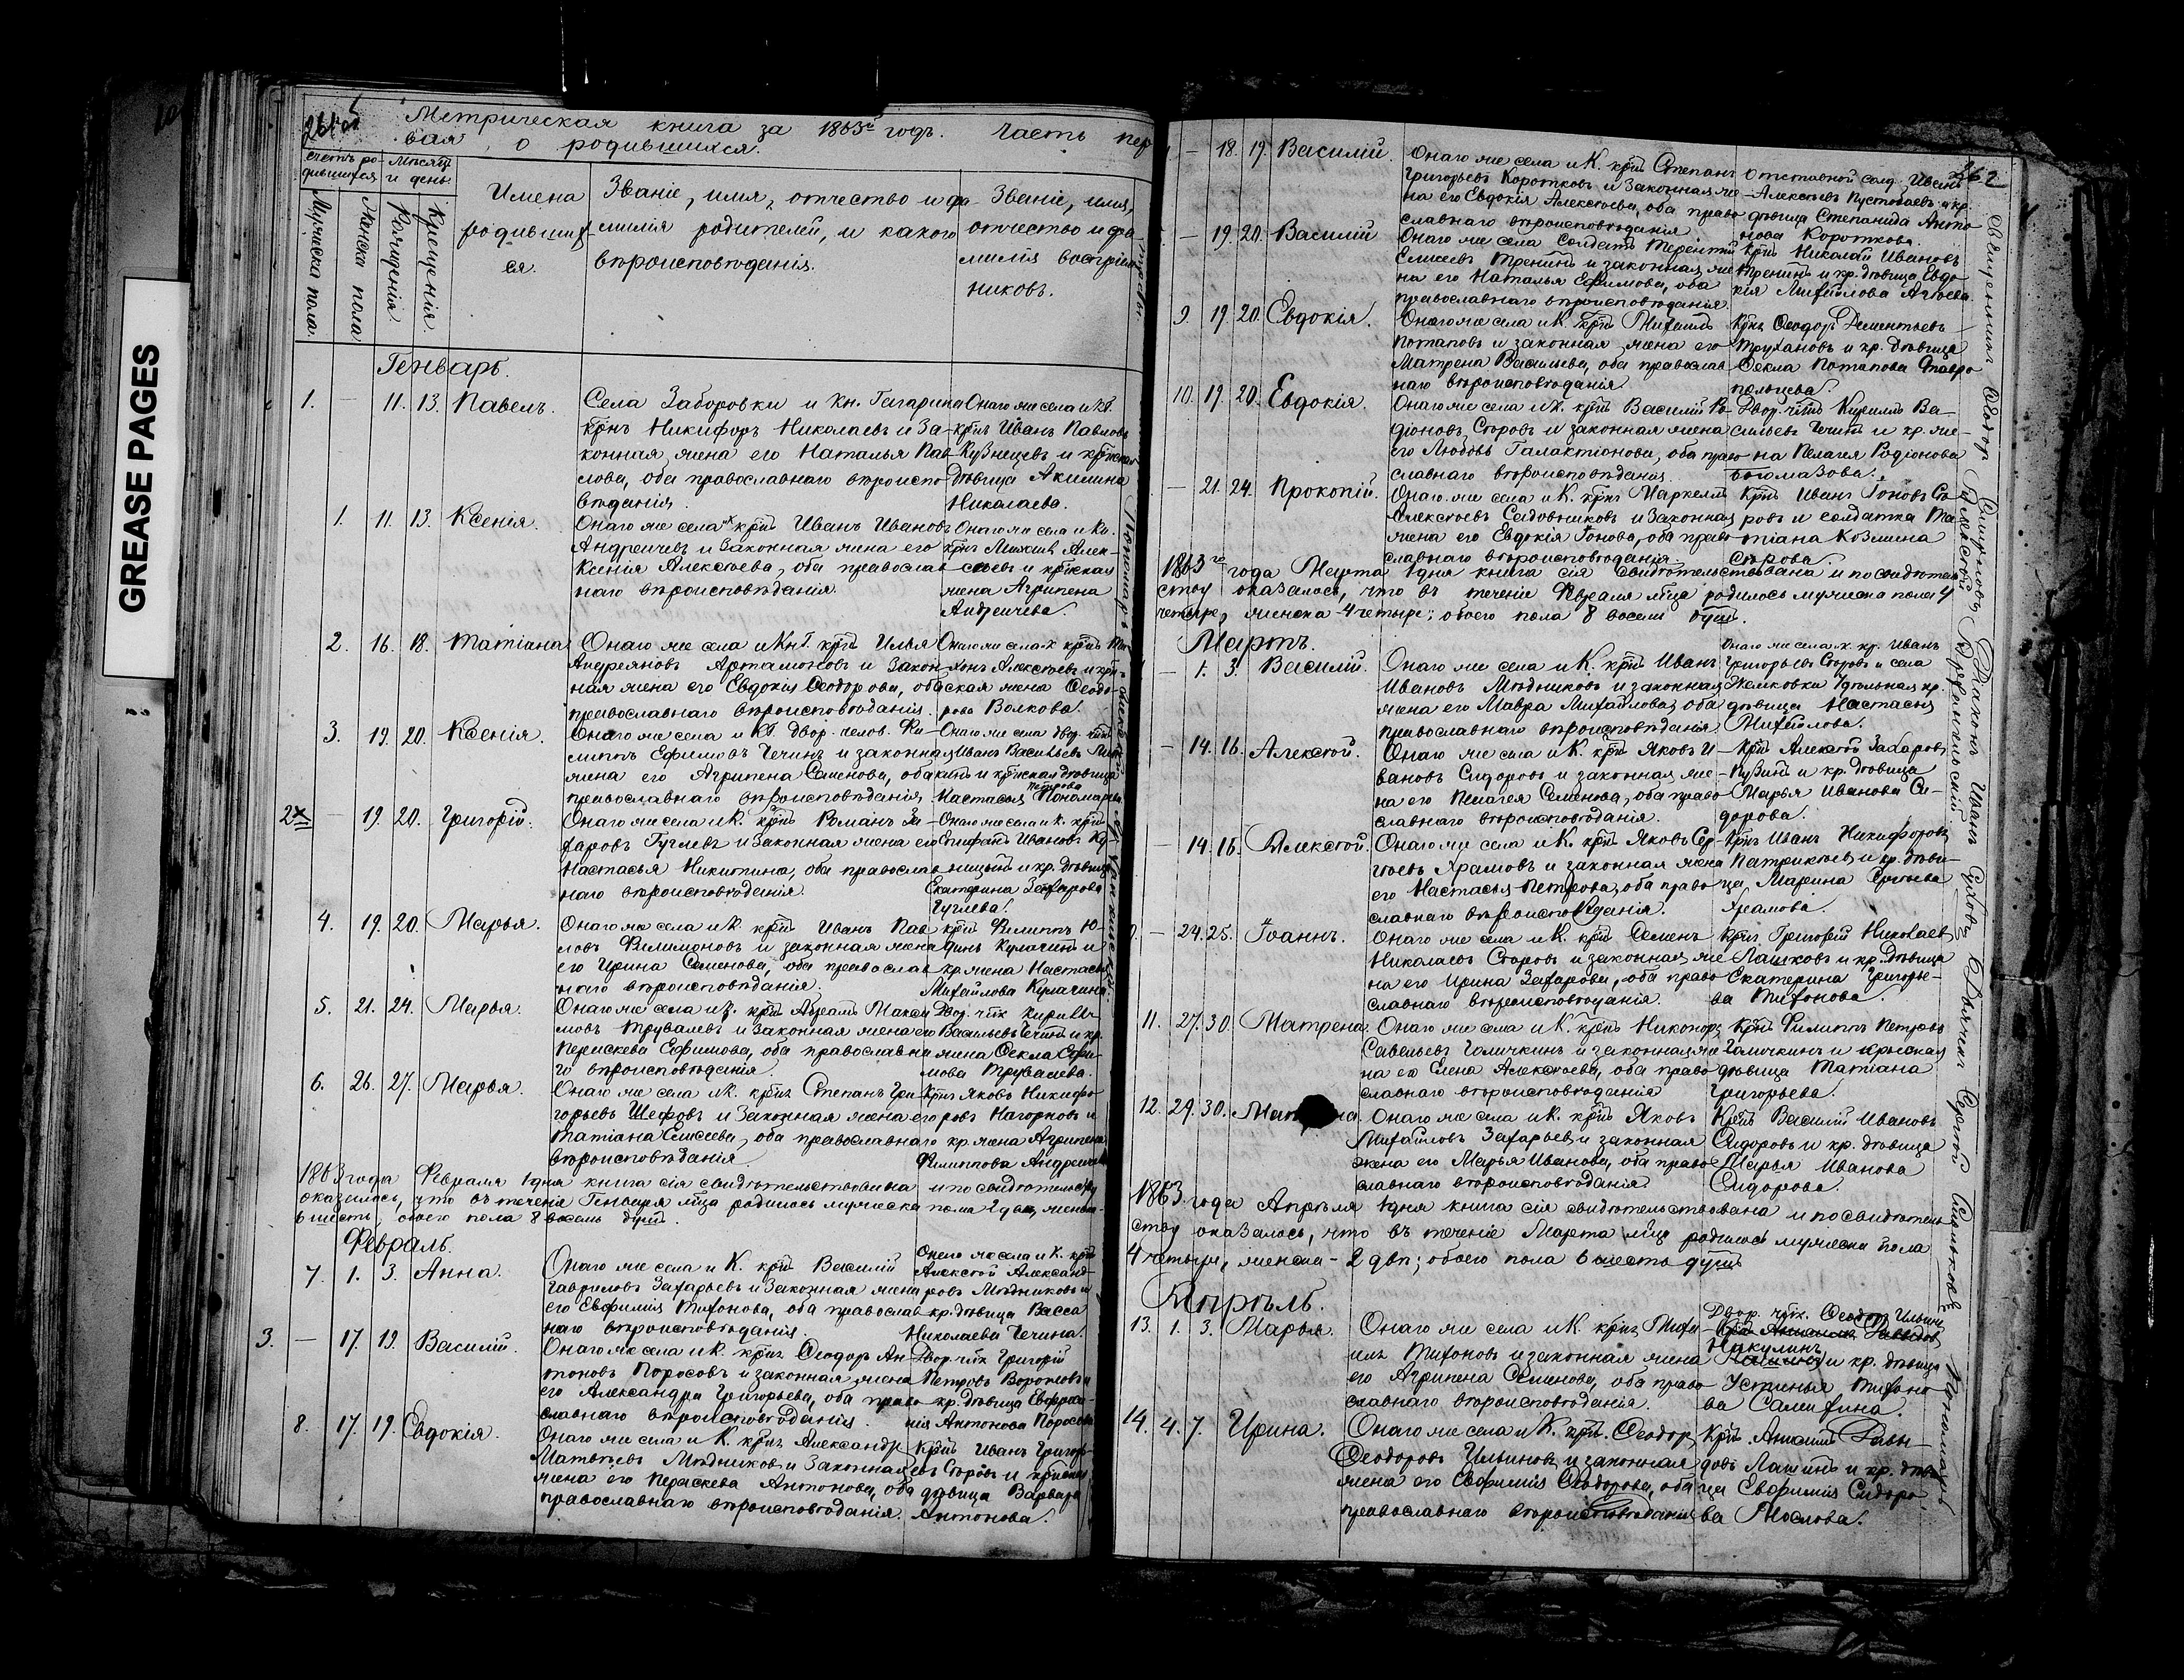 GREASE PAGES
Метрическая книга за 1863й годъ. Часть пер
вая, о родившихся.
счетъ ро-
дившихся
Мѣсяцъ
и день
Мужеска пола.
Женска пола.
Рожденія.
Крещенія.
Имена
родивших-
ся.
Званіе, имя, отчество и фа-
милія родителей, и какого
вѣроисповѣданія.
Званіе, имя,
отчество и фа-
милія воспріем
никовъ.
Генварь.
1. — 11. 13. Павелъ.
Села Заборовки и Кн. Гагарина
крнъ Никифоръ Николаевъ и За-
конная жена его Наталья Пав-
лова, оба православнаго вѣроиспо-
вѣданія.
Онаго же села и КГ.
крнъ Иванъ Павловъ
Кузнецовъ и крнская
дѣвица Акилина
Николаева.
1. 11. 13. Ксенія.
Онаго же села и К крнъ Иванъ Ивановъ
Андреичевъ и Законная жена его
Ксенія Алексѣева, оба православ
наго вѣроисповѣданія.
Онаго же села и Кн.
крнъ Алек-
сѣевъ и крнская
жена Агрипена
Андреичева.
2. 16. 18. Татіана
Онаго же села и КнГ. крнъ Илья
Андреяновъ Артамоновъ и Закон-
ная жена его Евдокія Ѳеодорова, оба
православнаго вѣроисповѣданія.
Онаго же села К крнъ
Алексѣевъ и крн-
ская жена Ѳеодо-
рова Волкова.
3. 19. 20. Ксенія.
Онаго же села и КГ. двор. челов. Фи-
липпъ Ефимовъ Чечинъ и законная
жена его Агрипена Семенова, оба
православнаго вѣроисповѣданія.
Онаго же села двор. члв
Иванъ Васильевъ
и крнская дѣвица
Настасья Петрова Пономарева
2 — 19. 20. Григорій.
Онаго же села и К. крнъ Романъ За-
харовъ Гуглевъ и Законная жена его
Настасья Никитина, оба православ
наго вѣроисповѣданія.
Онаго же села и К. крнъ
Епифанъ Ивановъ
и кр. дѣвица
Екатерина Захарова
Гуглева.
4. 19. 20. Марья.
Онаго же села и К. крнъ Иванъ Пав
ловъ Филимоновъ и законная жена
его Ирина Семенова, оба православ
наго вѣроисповѣданія.
крнъ Филиппъ Ю-
динъ Кулагинъ и
кр. жена Настасья
Михайлова Кулагина.
5. 21. 24. Марья.
Онаго же села и К. крнъ Абрамъ Макси
мовъ Трувалевъ и Законная жена его
Параскева Ефимова, оба православна
го вѣроисповѣданія.
Двор. члк Кириллъ
Васильевъ Чечинъ и кр.
жена Ѳекла Ефи-
мова Трувалева.
6. 26. 27. Марья.
Онаго же села и К. крнъ Степанъ Гри-
горьевъ Шефовъ и Законная жена его
Татіана Елисеева, оба православнаго
вѣроисповѣданія.
Крнъ Яковъ Никифо
ровъ Нагорновъ и
кр. жена Агрипена
Филиппова Андреичева
1863 года Февраля 1 дня книга сія свидѣтельствована и по свидѣтельству
оказалось, что въ теченіе Генваря м́ца родилось мужеска пола 2 два, женска
6 шесть, обоего пола 8 восемь душъ.
Февраль.
7. 1. 3. Анна.
Онаго же села и К. крнъ Василій
Гавриловъ Захарьевъ и Законная жена
его Евфимія Тихонова, оба православ
наго вѣроисповѣданія.
Онаго же села и К. крнъ
Алексѣй Александ-
ровъ Мѣдниковъ и
кр. дѣвица Васса
Николаева Чечина.
3. — 17. 19. Василій.
Онаго же села и К. крнъ Ѳеодоръ Ан-
тоновъ Поросовъ и законная жена
его Александра Григорьева, оба право
славнаго вѣроисповѣданія.
Двор. члк Григорій
Петровъ
кр. дѣвица Евфроси-
нія Антонова Поросова
8. 17. 19. Евдокія.
Онаго же села и К. крнъ Александръ
Матвѣевъ Мѣдниковъ и Законная
жена его Параскева Антонова, оба
православнаго вѣроисповѣданія.
Крнъ Иванъ Григорь-
евъ Егоровъ и крнская
дѣвица Варвара
Антонова.
262
— 18. 19. Василій.
Онаго же села и К. крнъ Степанъ
Григорьевъ Коротковъ и Законная же-
на его Евдокія Алексѣева, оба право
славнаго вѣроисповѣданія.
Отставной солд. Иванъ
Алексѣевъ Пустобаевъ и кр.
дѣвица Степанида Анто
нова Короткова.
— 19. 20. Василій
Онаго же села Солдатъ Терентій
Елисеевъ Тренинъ и законная же
на его Наталья Ефимова, оба
православнаго вѣроисповѣданія.
Крнъ Николай Ивановъ
Тренинъ и кр. дѣвица Евдо
кія Михайлова Агѣева.
9. 19. 20. Евдокія.
Онаго же села и К. крнъ Михаилъ
Потаповъ и законная жена его
Матрена Васильева, оба православ
наго вѣроисповѣданія.
Крнъ Ѳеодоръ Дементьевъ
Трухановъ и кр. дѣвица
Ѳекла Потапова Ставро
польцева.
10. 19. 20. Евдокія.
Онаго же села и К. крнъ Василій Ро-
діоновъ Егоровъ и законная жена
его Любовь Галактіонова, оба право
славнаго вѣроисповѣданія.
Двор. члкъ Кириллъ Ва-
сильевъ Чечинъ и кр. же-
на Пелагея Родіонова
Богомазова.
— 21. 24. Прокопій.
Онаго же села и К. крнъ Маркелъ
Алексѣевъ Садовниковъ и Законная
жена его Евдокія Іонова, оба право
славнаго вѣроисповѣданія.
Крнъ Иванъ Іоновъ Его
ровъ и солдатка Та
тіана Козмина
Егорова.
1863го года Марта 1 дня книга сія свидѣтельствована и по свидѣтель
ству оказалось, что въ теченіе Февраля м́ца родилось мужеска пола 4
четыре, женска 4 четыре; обоего пола 8 восемь душъ.
Мартъ.
— 1. 3. Василій.
Онаго же села и К. крнъ Иванъ
Ивановъ Мѣдниковъ и законная
жена его Мавра Михайлова, оба
православнаго вѣроисповѣданія.
Онаго же села К. кр. Иванъ
Григорьевъ Егоровъ и села
Жемковки Удѣльная кр.
дѣвица Настасья
Михайлова.
— 14. 16. Алексѣй.
Онаго же села и К. крнъ Яковъ И-
вановъ Сидоровъ и законная же-
на его Пелагея Семенова, оба право
славнаго вѣроисповѣданія.
Крнъ Алексѣй Захаровъ
Кузинъ и кр. дѣвица
Марья Иванова Си-
дорова.
— 14. 16. Алексѣй.
Онаго же села и К. крнъ Яковъ Сер-
гѣевъ Храмовъ и законная жена
его Настасья Петрова, оба право
славнаго вѣроисповѣданія.
Крнъ Иванъ Никифоровъ
Патрикѣевъ и кр. дѣви-
ца Марина Сергѣева
Храмова.
— 24. 25. Іоаннъ.
Онаго же села и К. крнъ Семенъ
Николаевъ Егоровъ и законная же
на его Ирина Захарова, оба право
славнаго вѣроисповѣданія.
Крнъ Григорій Николаевъ
Лашковъ и кр. дѣвица
Екатерина Григорье-
ва Тихонова.
11. 27. 30. Матрена.
Онаго же села и К. крнъ Никоноръ
Савельевъ Галичкинъ и законная же
на его Елена Алексѣева, оба право
славнаго вѣроисповѣданія
Крнъ Филиппъ Петровъ
Галичкинъ и крнская
дѣвица Татіана
Григорьева.
12. 29. 30.
Онаго же села и К. крнъ Яковъ
Михайловъ Захарьевъ и законная
жена его Марья Иванова, оба право
славнаго вѣроисповѣданія.
Крнъ Василій Ивановъ
Сидоровъ и кр. дѣвица
Марья Иванова
Сидорова.
1863 года Апрѣля 1 дня книга сія свидѣтельствована и по свидѣтель
ству оказалось, что въ теченіе Марта м́ца родилось мужеска пола
4 четыре, женска — 2 двѣ; обоего пола 6 шесть душъ
Апрѣль.
13. 1. 3. Марья.
Онаго же села и К. крнъ Миха-
илъ Тихоновъ и законная жена
его Агрипена Семенова, оба право
славнаго вѣроисповѣданія.
Двор. члк. Ѳеодоръ Ильинъ
Никулинъ
и кр. дѣвица
Устинья Тихоно
ва Салифина.
14. 4. 7. Ирина.
Онаго же села и К. крнъ. Ѳеодоръ
Ѳеодоровъ Ильинъ и законная
жена его Евфимія Ѳеодорова, оба
православнаго вѣроисповѣданія
Крнъ Анисимъ Давы-
довъ Лашинъ и кр. дѣви
ца Евфимія Сидоро
ва Маслова.
Священникъ Ѳеодоръ Смирновъ Діаконъ Иванъ
Дьячекъ Сергѣй Пономарь